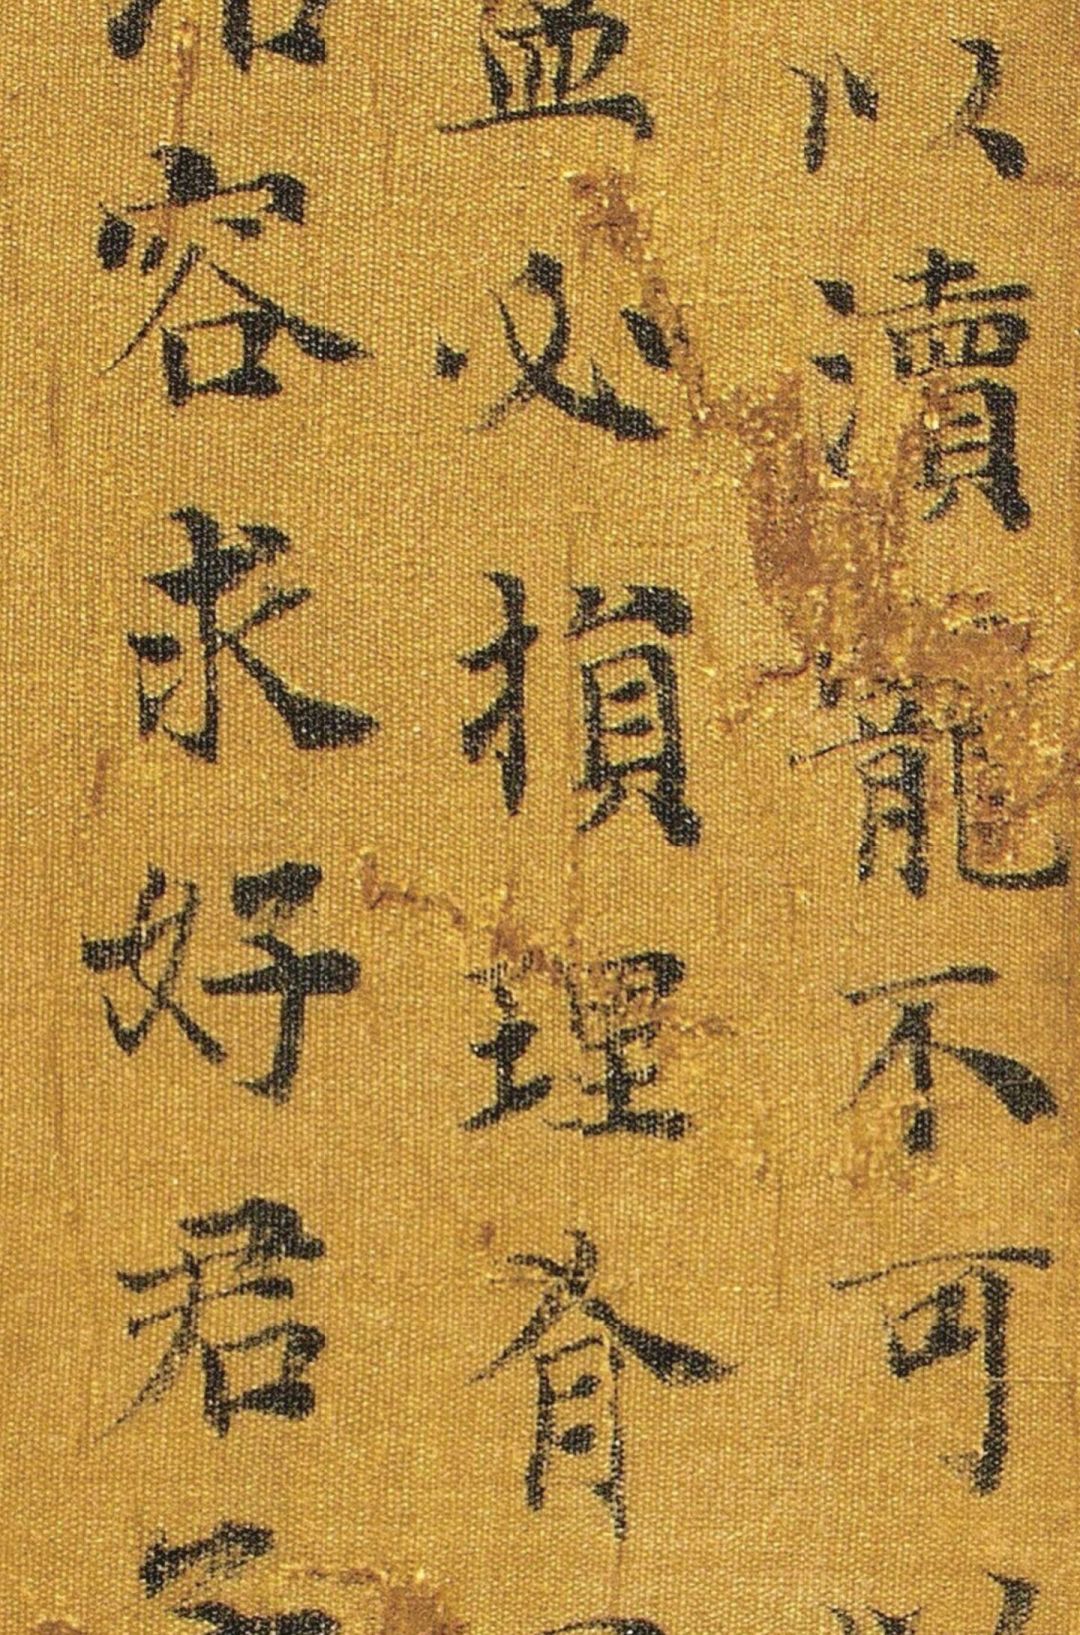 以瀆寵不可
盈必損理有
容求好君